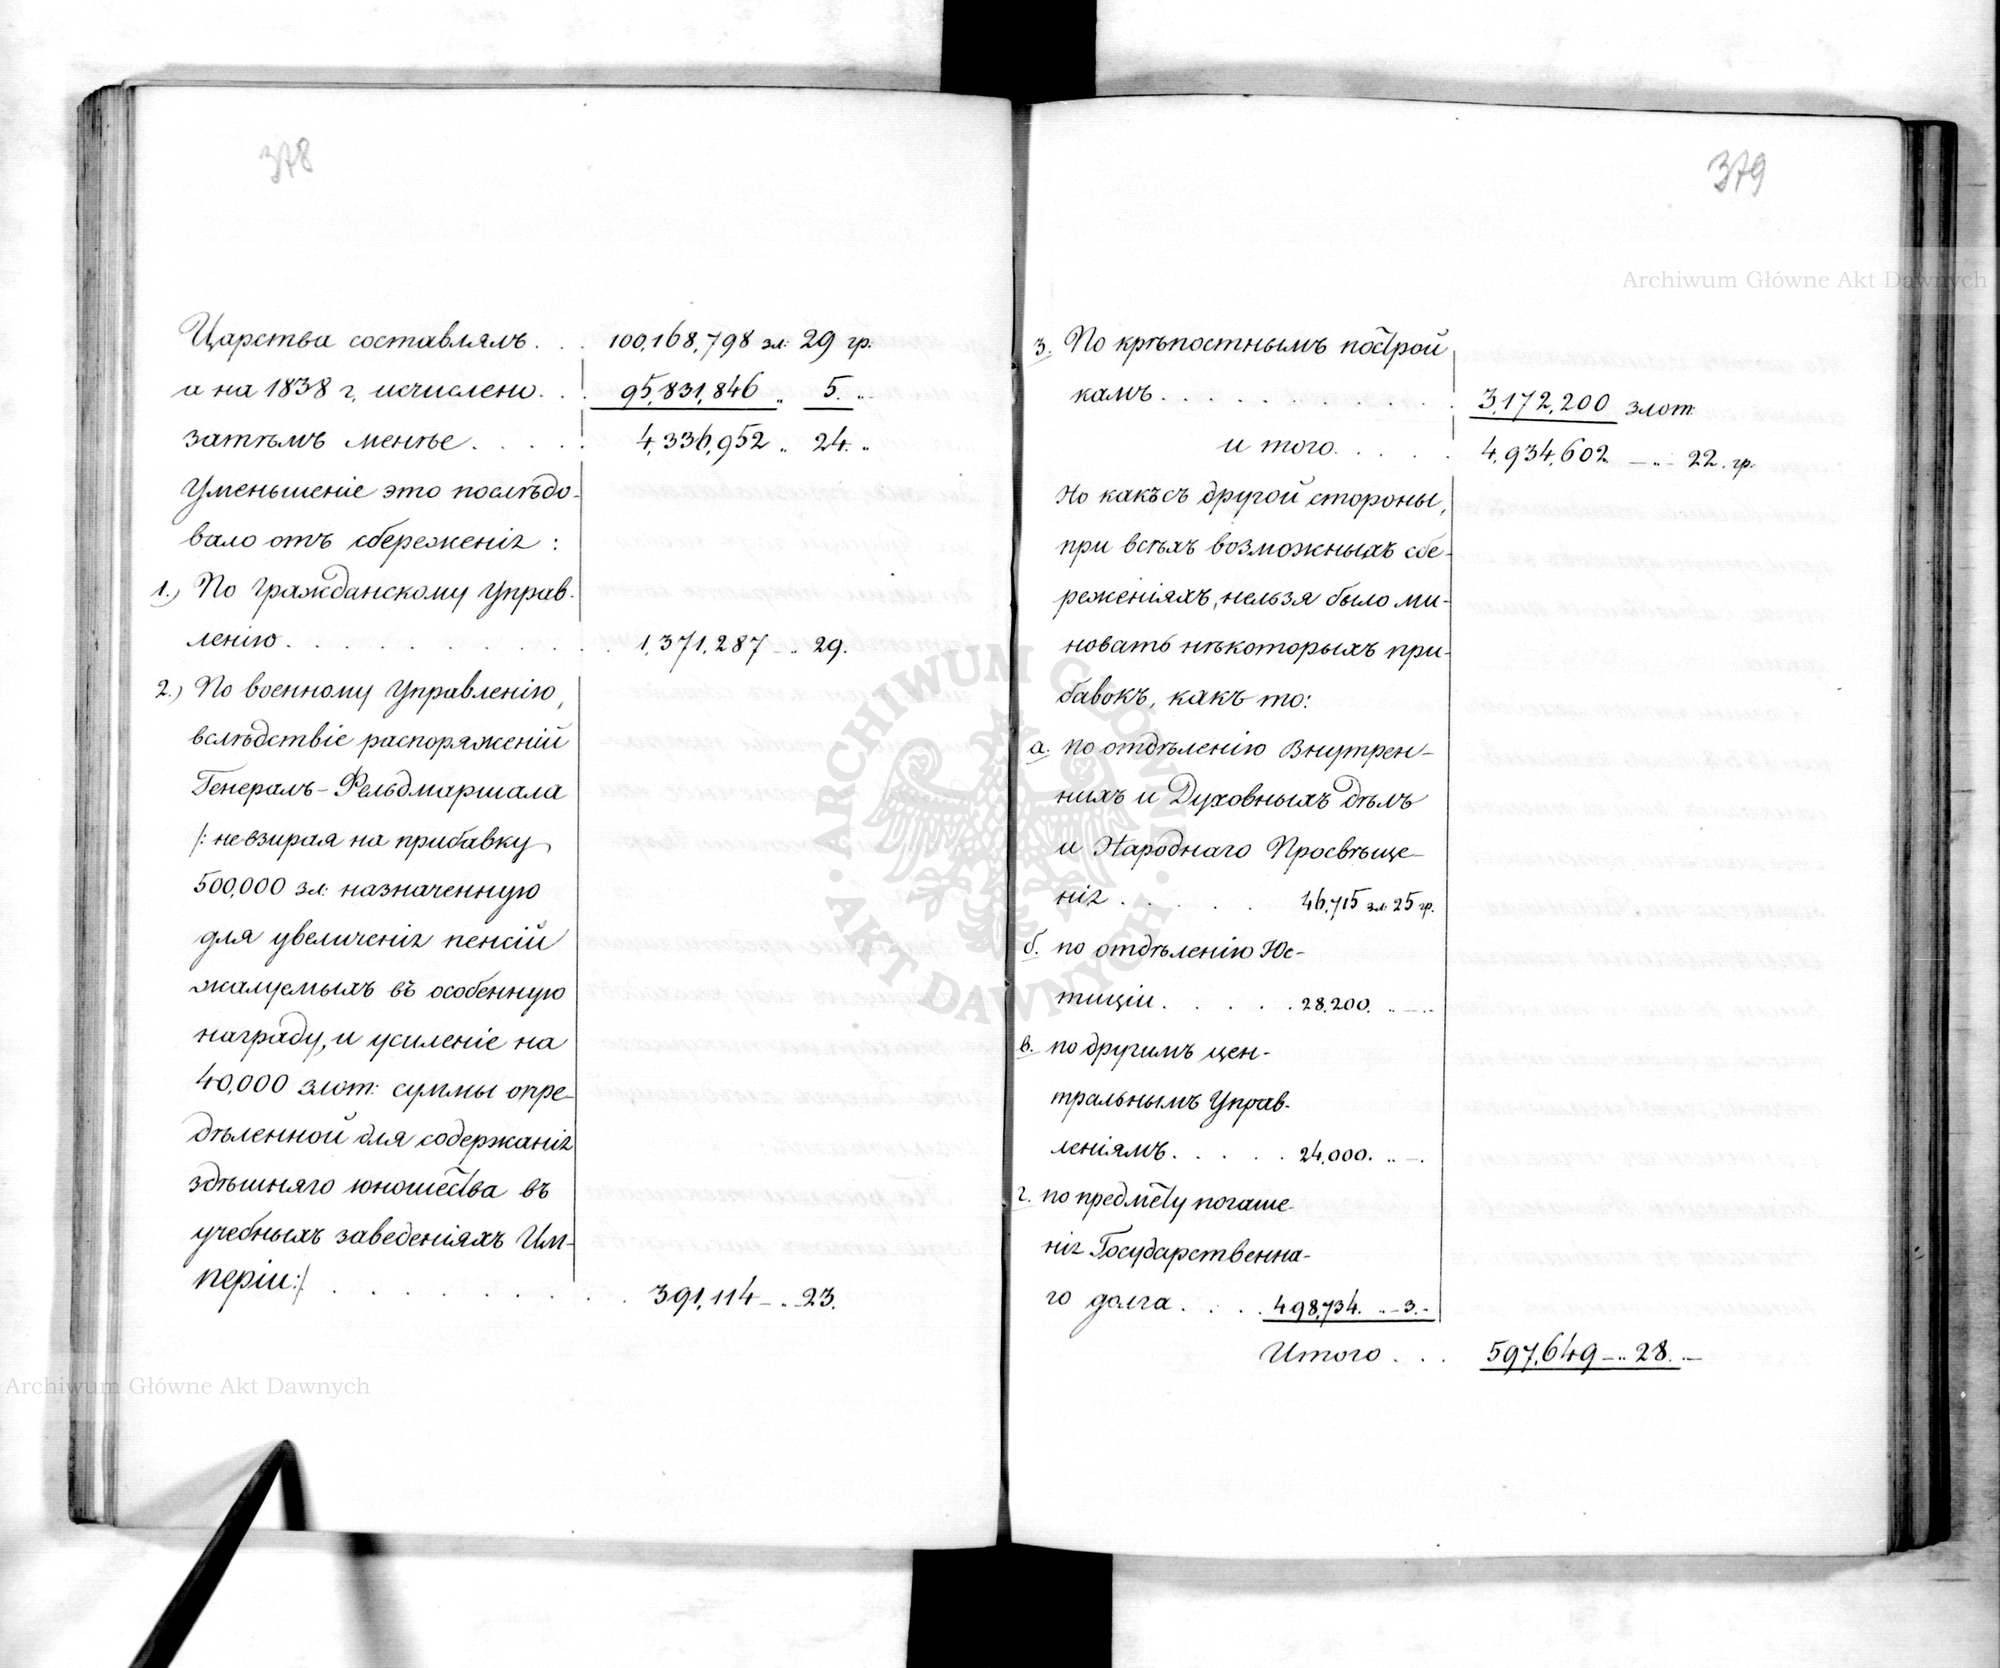 378
Царства составлялъ. . . 100,168,798 зл: 29 гр.
а на 1838 г. исчислено. . . 95,831,846 „ 5. „
затѣмъ менѣе . . . . . 4,336,952 „ 24. „
Уменьшеніе это послѣдо-
вало отъ сбереженія :
1.) По Гражданскому Управ-
ленію. . . . . . . . . . . 1,371,287 — „ 29.
2.) По военному Управленію,
вслѣдствіе распоряженій
Генералъ-Фельдмаршала
/: невзирая на прибавку
500,000 зл: назначенную
для увеличенія пенсій
жалуемыхъ въ особенную
награду, и усиленіе на
40,000 злот: суммы опре-
дѣленной для содержанія
здѣшняго юношества въ
учебныхъ заведеніяхъ Им-
періи:/ . . . . . . . . . . 391,114 — „ 23.
379
3. По крѣпостнымъ построй
камъ. . . . . . . . . . . . 3,172,200 злот
и того. . . . . 4,934,602 — „ — 22. гр.
Но какъ съ другой стороны,
при всѣхъ возможныхъ сбе-
реженіяхъ, нельзя было ми-
новать нѣкоторыхъ при-
бавокъ, какъ то:
а. по отдѣленію Внутрен-
нихъ и Духовныхъ дѣлъ
и Народнаго Просвѣще-
нія . . . . . 46,715 зл. 25 гр.
б. по отдѣленію Юс-
тиціи. . . . . . 28,200. „ — „
в. по другимъ цен-
тральнымъ Управ-
леніямъ. . . . . 24,000. „ — .
г. по предмету погаше-
нія Государственна-
го долга . . . . 498,734. „ — 3. -
Итого . . . 597,649 — „ 28. —
Archiwum Główne Akt Dawnych
Archiwum Główne Akt Dawnych
· ARCHIWUM GŁÓWNE · AKT DAWNYCH ·